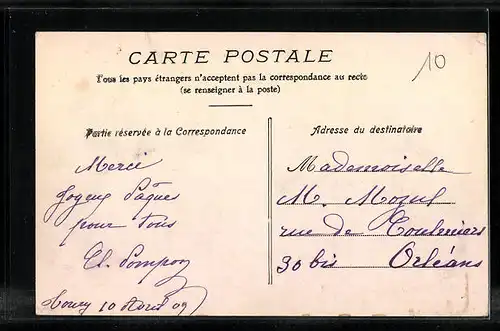 10
CARTE POSTALE
Tous les pays étrangers n'acceptent pas la correspondance au recto
(se renseigner à la poste)
Partie réservée à la Correspondance
Adresse du destinataire
Merci
Joyeux Pâques
pour Tous
10 Avril 09
Mademoiselle
M.
rue de Coulmiers
30 bis Orléans